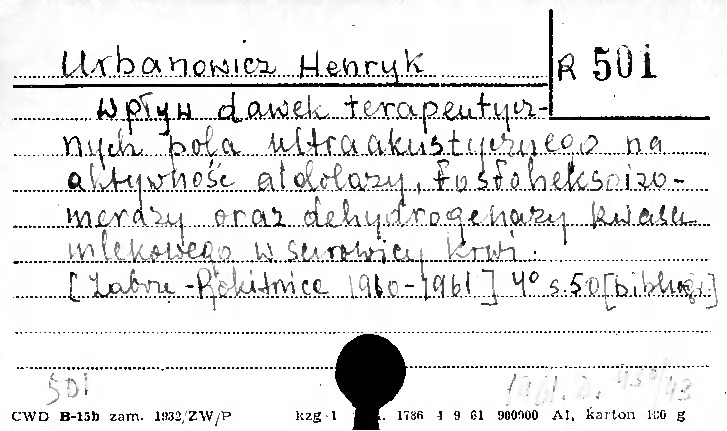 Urbanowicz Henryk
R 501
Wpływ dawek terapeutycz-
nych pola ultraakustycznego na
aktywność aldolazy, fosfoheksoizo-
merazy oraz dehydrogenazy kwasu
mlekowego w surowicy krwi.
[Zabrze-Rokitnica 1960-1961] 4° s. 50 [bibliogr.]
501
1961. D. 450/43
CWD B-15b zam. 1932/ZW/P kzg 1 1786 4 9 61 900000 A1, karton 180 g